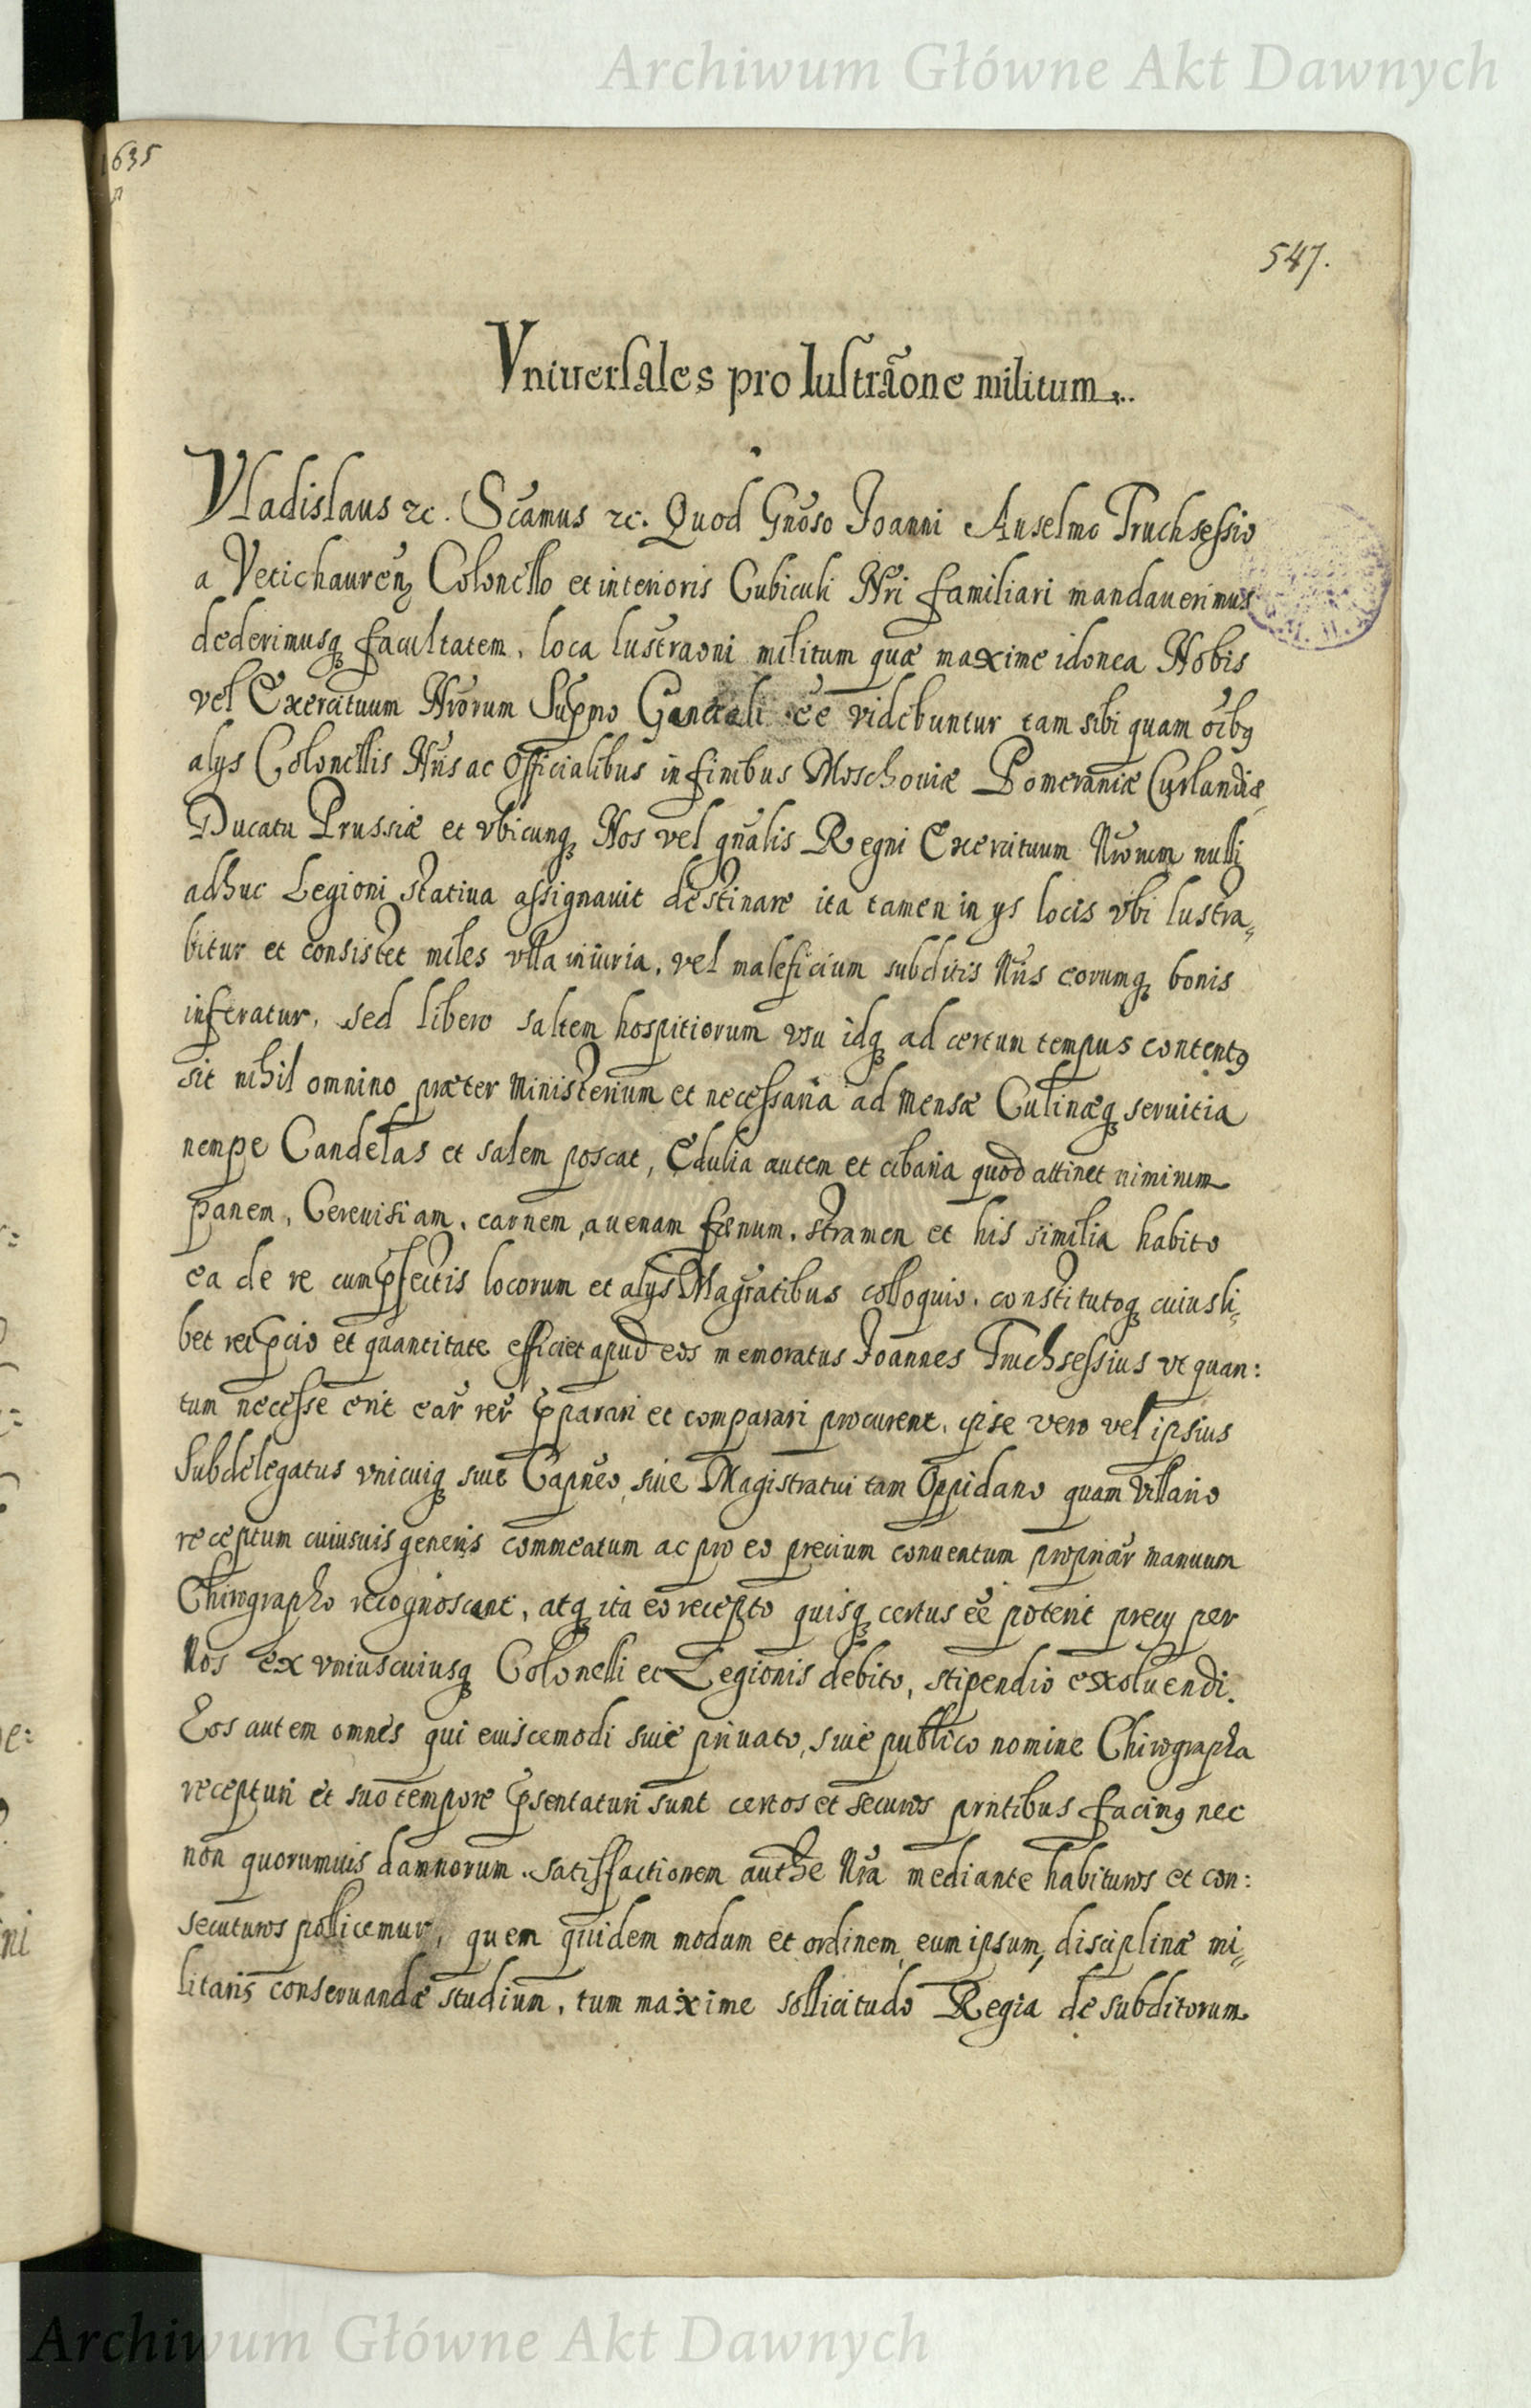 Archiwum Główne Akt Dawnych
1635
547.
Vniuersales pro lustrãone militum
Vladislaus etc. Scamus etc. Quod Gnoso Joanni Anselmo Truchsessio
a Vetichausen Colonello et interioris Cubiculi Nri familiari mandauerimus
dederimusq facultatem, loca lustraoni militum quæ maxime idonea Nobis
vel Exercituum Nrorum Supmo Generali ee videbuntur tam sibi quam oibq
alys Colonellis Nris ac Officialibus in finibus Moschouiæ Pomeraniæ Curlandiæ
Ducatu Prussiæ et vbicunq Nos vel gnalis Regni Exercituum Nrorum nulli
adhuc Legioni statiua assignauit destinare ita tamen in ys locis vbi lustra,,
bitur et consistet miles vlla iniuria, vel maleficium subditis Nris eorumq bonis
inferatur, sed libero saltem hospitiorum vsu idq ad certum tempus contentq
sit nihil omnino præter Ministerium et necessaria ad Mensæ Culinæq seruitia
nempe Candelas et salem poscat, Edulia autem et cibaria quod attinet nimirum
panem, Cereuisiam, carnem, auenam fœnum, stramen et his similia habito
ea de re cum Pfectis locorum et alys Magratibus colloquio, constitutoq cuiusli,,
bet rei pcio et quantitate efficiet apud eos memoratus Joannes Truchsessius vt quan:
tum necesse erit ear rer pparari et comparari procurent, ipse vero vel ipsius
Subdelegatus vnicuiq siue Capneo, siue Magistratui tam Oppidano quam Villano
receptum cuiusuis generis commeatum ac pro eo precium conuentum propriar manuum
Chirographo recognoscant, atq ita eo recepto quisq certus ee poterit precy per
Nos ex vniuscuiusq Colonelli et Legionis debito, stipendio exoluendi.
Eos autem omnes qui euiscemodi siue priuato, siue publico nomine Chirographa
recepturi et suo tempore psentaturi sunt certos et securos prntibus facimq nec
non quorumuis damnorum satisfactionem authe Nra mediante habituros et con:
secuturos pollicemur, quem quidem modum et ordinem eum ipsum, disciplinæ mi,,
litaris conseruandæ studium, tum maxime sollicitudo Regia de subditorum
Archiwum Główne Akt Dawnych